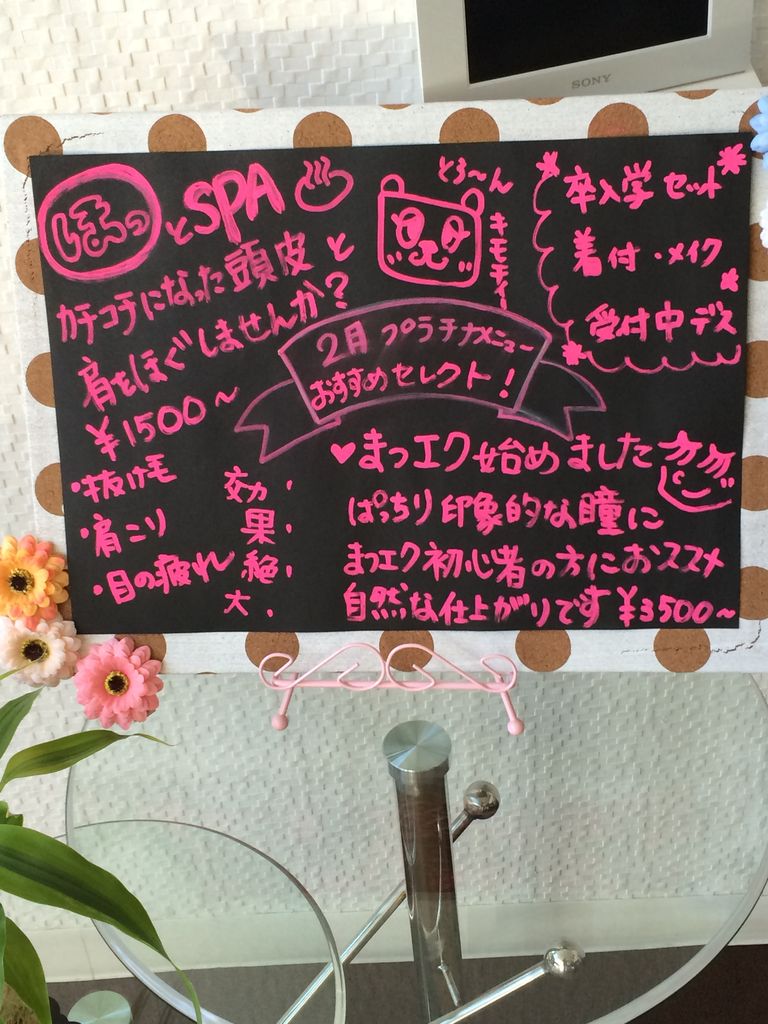 SONY
ほっとSPA♨
カチコチになった頭皮と
肩をほぐしませんか?
¥1500~
・抜け毛
・肩こり
・目の疲れ
効果絶大
とろ~ん
キモティー
卒入学セット
着付・メイク
受付中デス
2月 プラチナメニュー
おすすめセレクト!
♥まつエク始めました
ぱっちり印象的な瞳に
まつエク初心者の方におススメ
自然な仕上がりです¥3500~